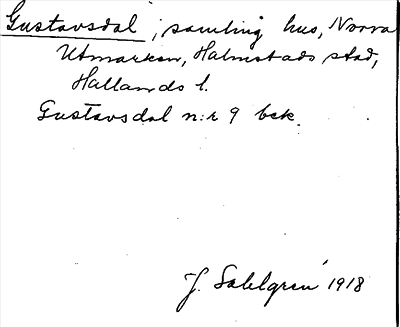 Gustavsdal, samling hus, Norra
Utmarken, Halmstads stad,
Hallands l.
Gustavsdal n:r 9 bek.
J. Sahlgren 1918